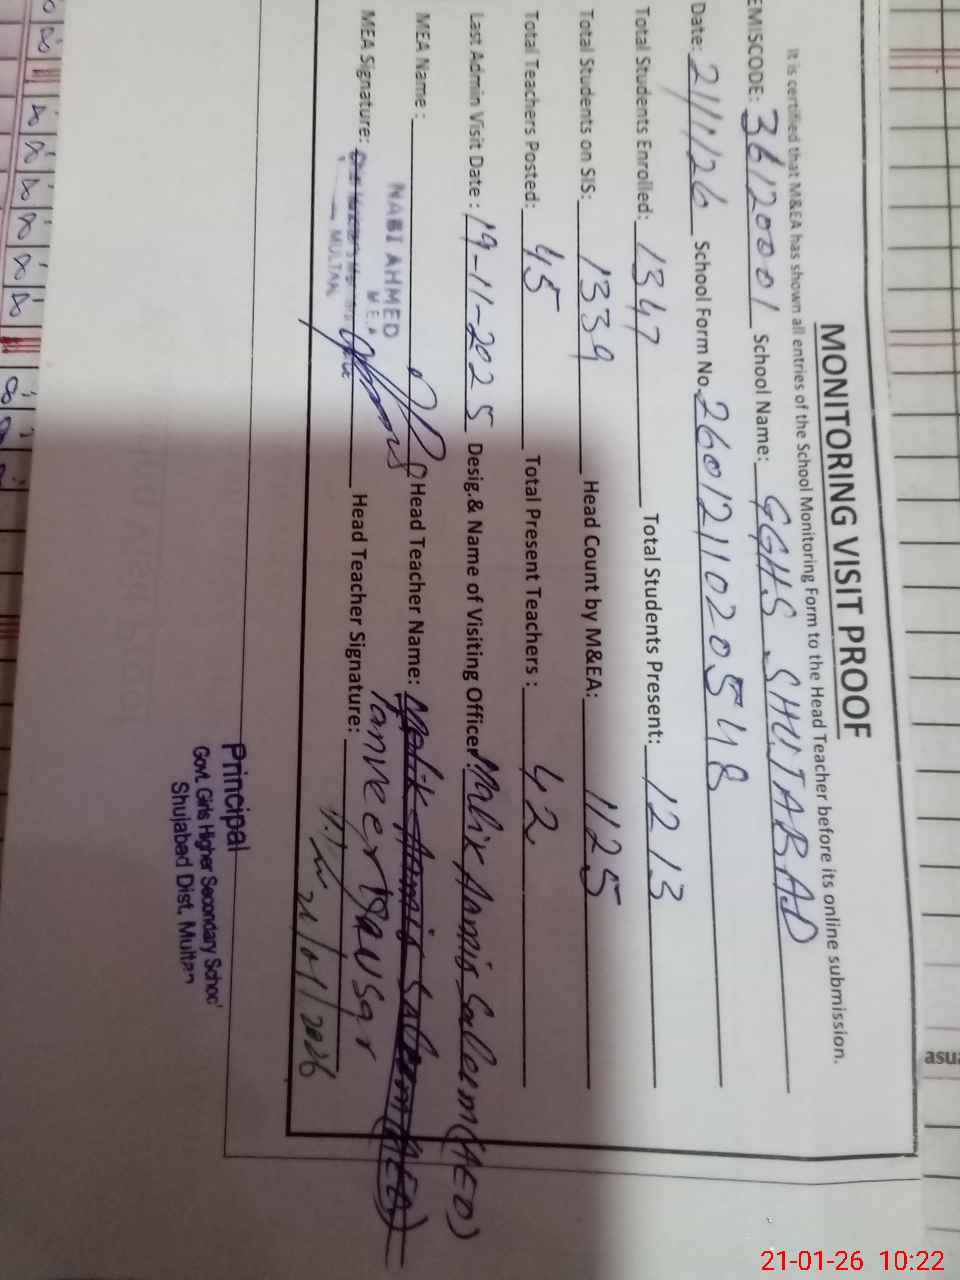 MONITORING VISIT PROOF
It is certified that M&EA has shown all entries of the School Monitoring Form to the Head Teacher before its online submission.
EMISCODE: 36120001 School Name: GGHS SHUJABAD
Date: 21/1/26 School Form No. 2601211020548
Total Students Enrolled: 1347 Total Students Present: 1213
Total Students on SIS: 1339 Head Count by M&EA: 1125
Total Teachers Posted: 45 Total Present Teachers : 42
Last Admin Visit Date : 19-11-2025 Desig.& Name of Visiting Officer: Malik Anmis Saleem (AEO)
MEA Name : Head Teacher Name: Malik Anmis Saleem (AEO)
NABI AHMED
M.E.A
MULTAN
Tanveer Kausar
MEA Signature: Head Teacher Signature:
21/01/2026
Principal
Govt. Girls Higher Secondary School
Shujabad Dist. Multan
asua
21-01-26 10:22